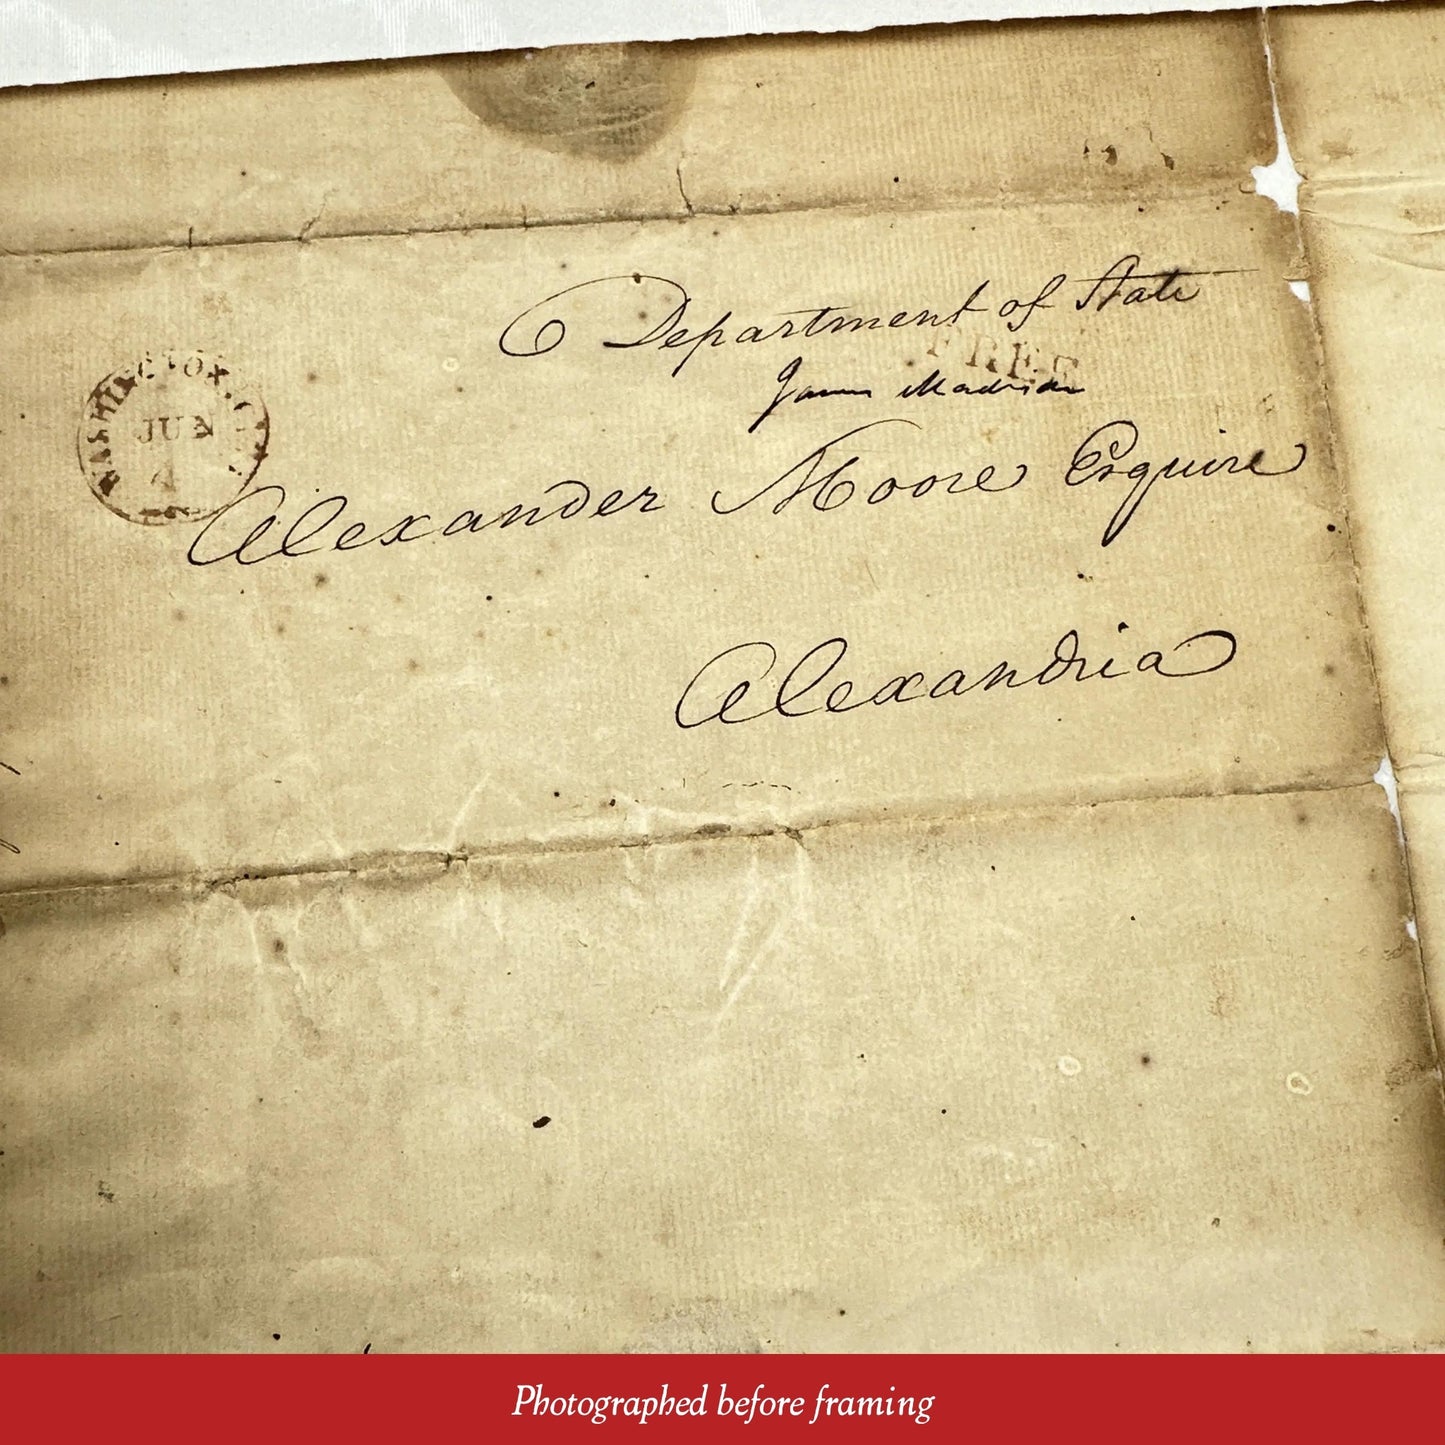 Department of State
FREE
James Madison
WASHINGTON
JUN
4
Alexander Moore Esquire
Alexandria
Photographed before framing